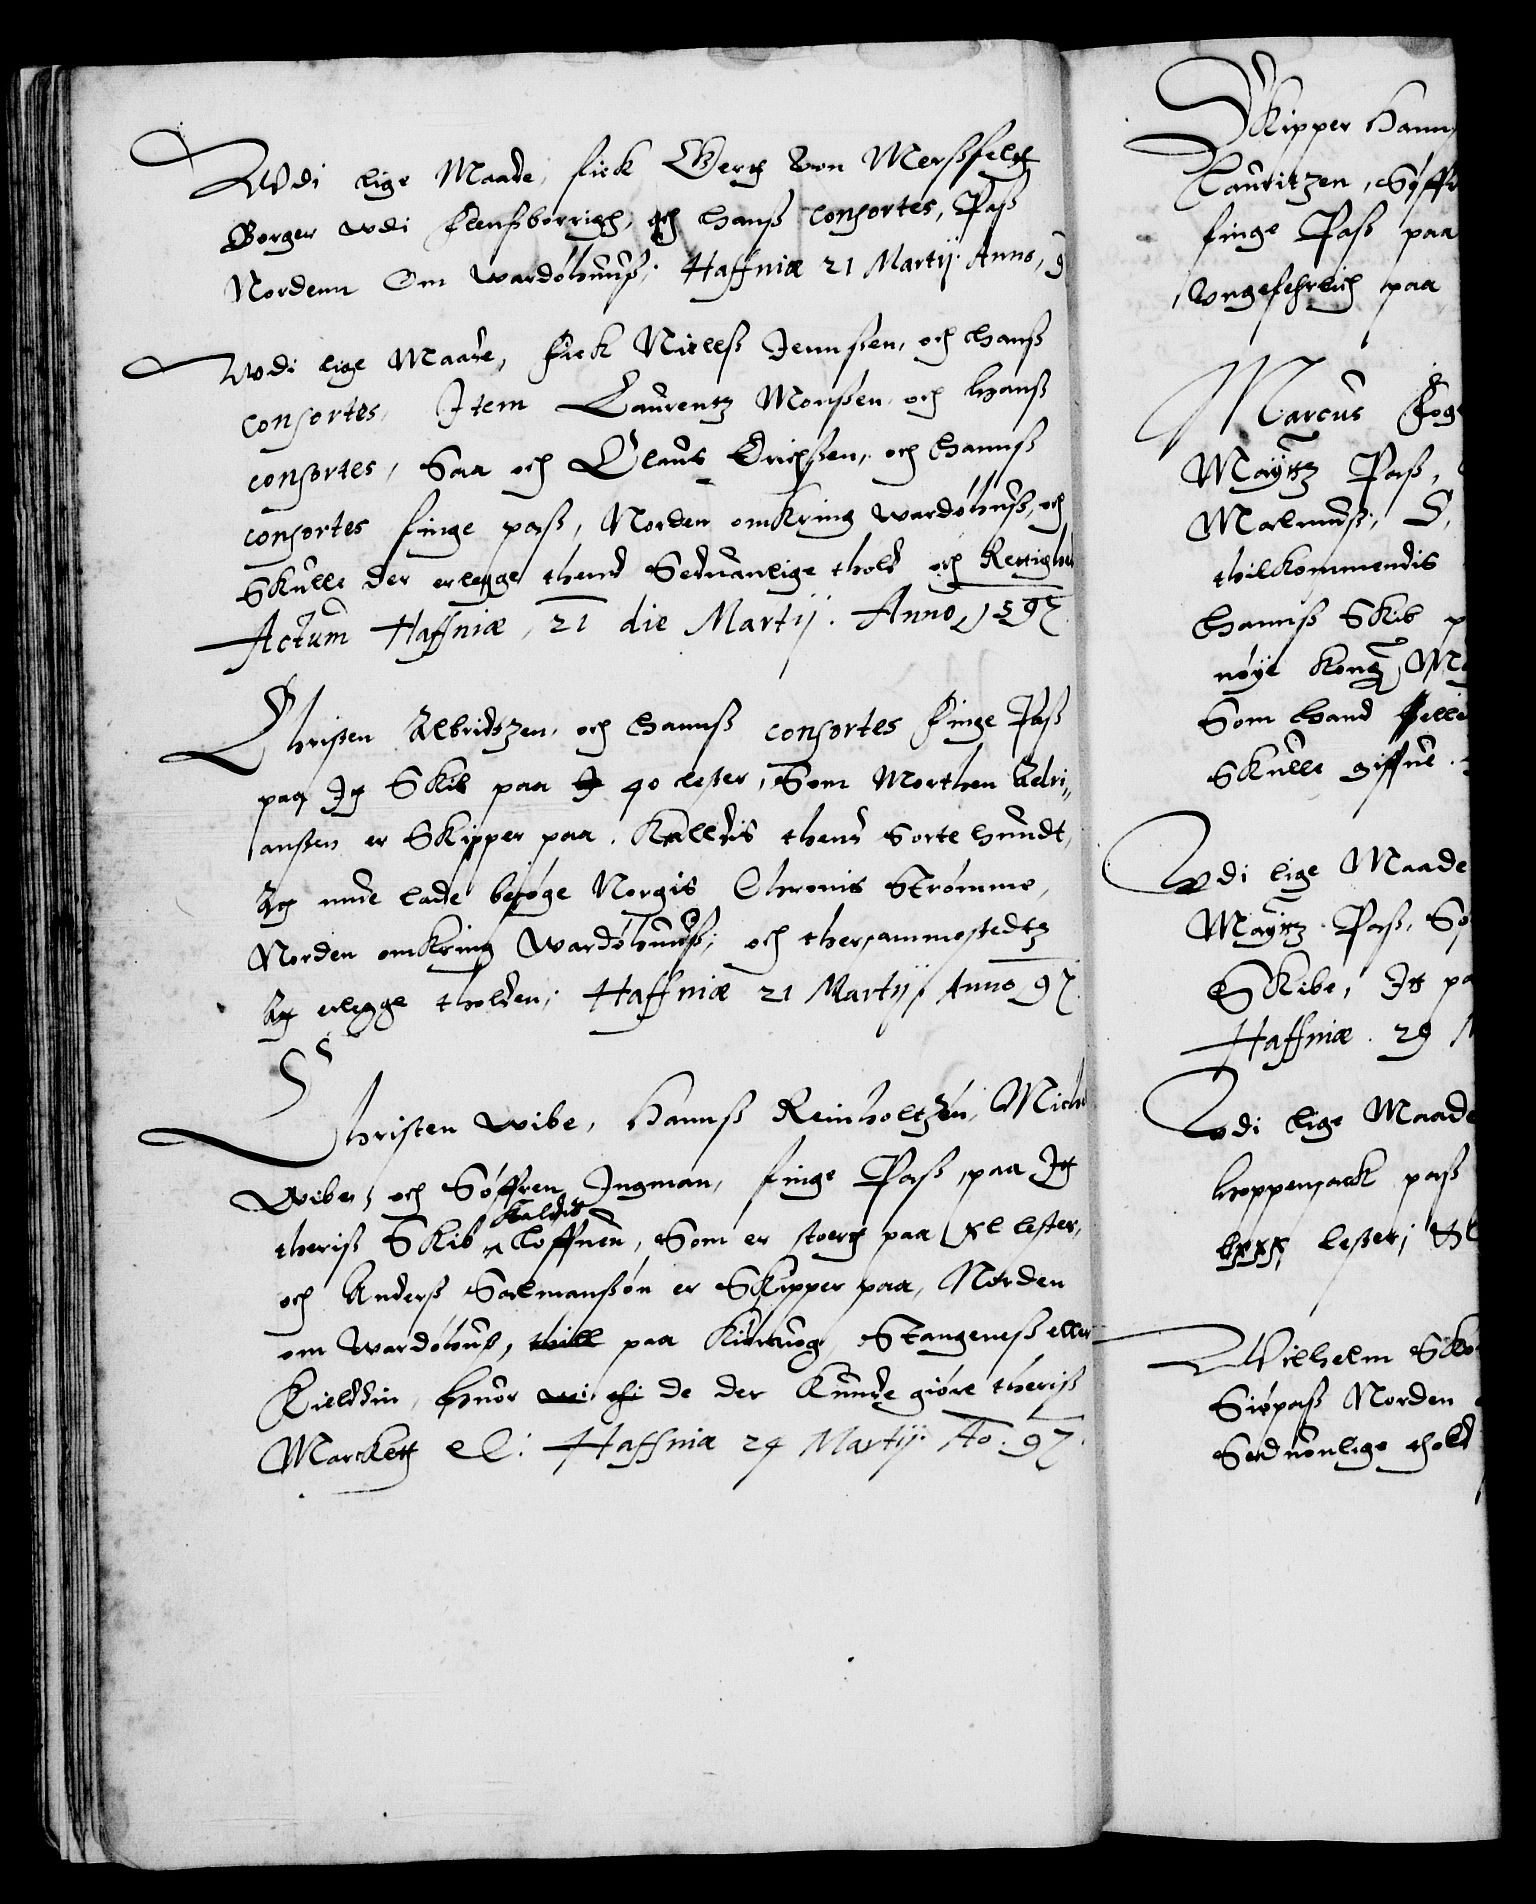 Wdi lige Maade, fick Gertt Von Merssfeltt
Borger wdi Flenssborrigh, och hanss consortes, Pass
Nordenn Om wardøhuuss; Haffniæ 21 Martij. Anno, 9
Wdi lige Maade, fick Nielss Jennssen, och hanss
consortes, Item Laurentz Monssen och hanss
consortes, Saa och Claus Erichssen, och hannss
consortes finge pass, Norden omkring wardøhuss, och
Skulle der erlegge thend Seduanlige thold och Rettighed
Actum Haffniæ, 21 die Martij. Anno 1597
Christen Albridtzen, och hannss consortes finge Pass
paa Itt Skib paa 40 lester, Som Morthen Adri„
anssen er Skipper paa. Kalldis thend Sorte hundt,
Att mue lade besøge Norgis Chronis Strømme,
Norden omkring Wardøhuuss; och thersammestedtz
Att erlegge tholden; Haffniæ 21 Martij, Anno 97
Christen wibe, Hannss Reinholtzen, Michel
Wibe, och Søffren Ingman, finge Pass, paa Itt
kaldis
theriss Skib Løffuen, Som er stoertt paa xl lester,
och Anderss Salmanssøn er Skipper paa, Norden
om Wardøhuss, till paa Stangeness eller
Kieldin, huor de der Kunde giøre theriss
Marckett etc: Haffniæ 24 Martij. Ao. 97.
Skipper Hanns
Lauritzen, Søffr
finge Pass paa
Vngefehrlich paa
Marcus Fog
Maytz Pass,
thilkommendis
Hannss Skib p
nøye Kong: M
Som hand
Skulle giffue.
Wdi lige Maade
Maytz Pass, So
Skibe, Itt pa
Haffniæ. 29 M
Wdi lige Maade
hoppensack pass
lxxx lester;
Wilhelm Sko
Siøpass Norden
Seduonlige thold